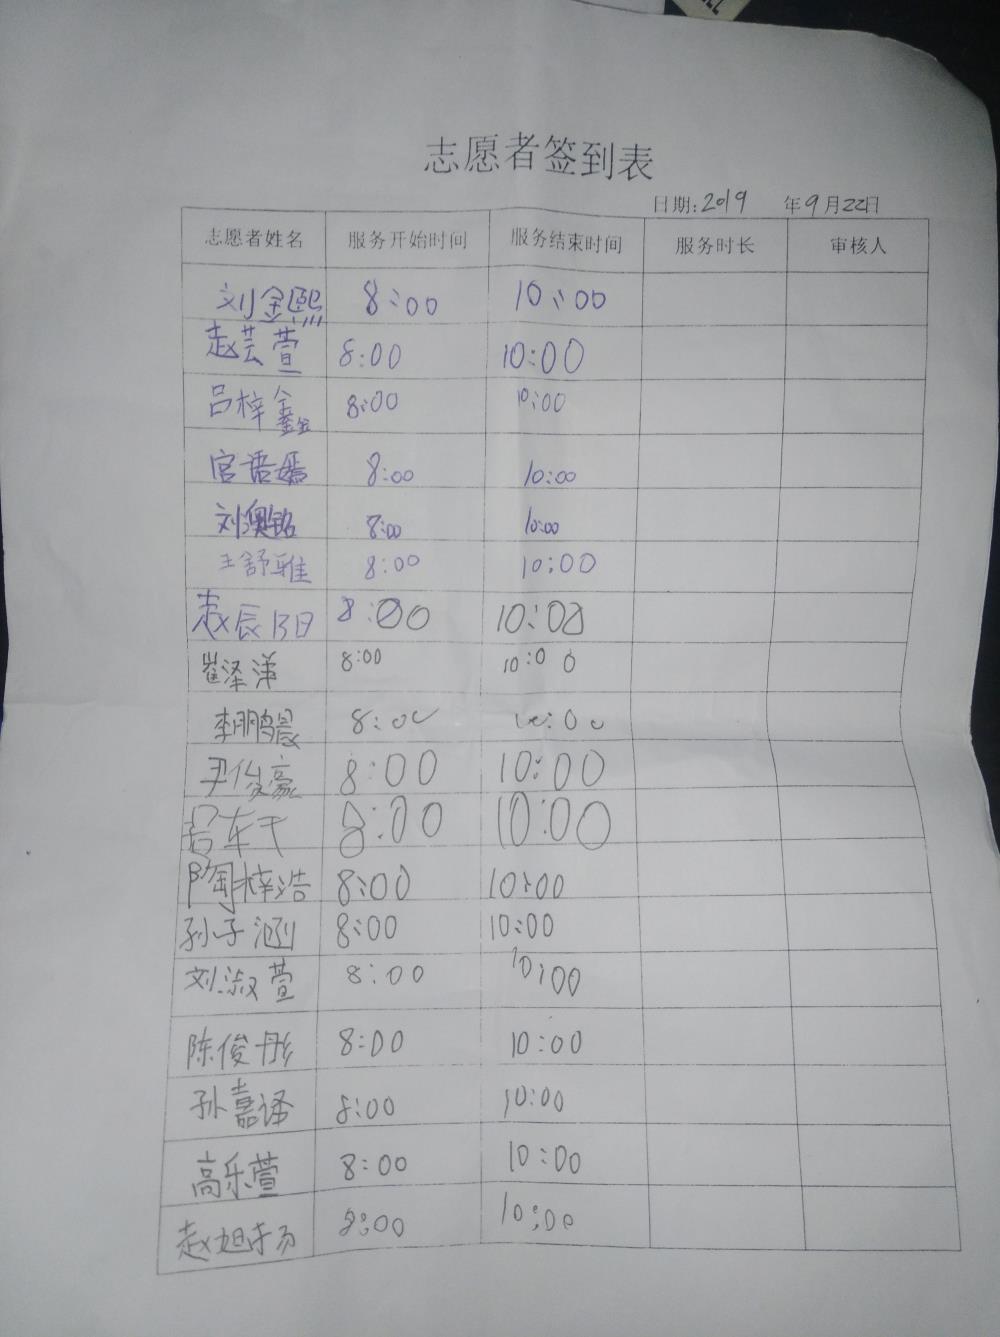 志愿者签到表
日期:2019 年9月22日
志愿者姓名 服务开始时间 服务结束时间 服务时长 审核人
刘金熙 8:00 10:00
赵芸萱 8:00 10:00
吕梓鑫 8:00 10:00
官语嫣 8:00 10:00
刘澳铭 8:00 10:00
王舒雅 8:00 10:00
赵辰阳 8:00 10:00
崔泽洋 8:00 10:00
李鹏晨 8:00 10:00
尹俊豪 8:00 10:00
8:00 10:00
陶梓浩 8:00 10:00
孙子涵 8:00 10:00
刘淑萱 8:00 10:00
陈俊彤 8:00 10:00
孙嘉译 8:00 10:00
高乐萱 8:00 10:00
赵旭扬 8:00 10:00